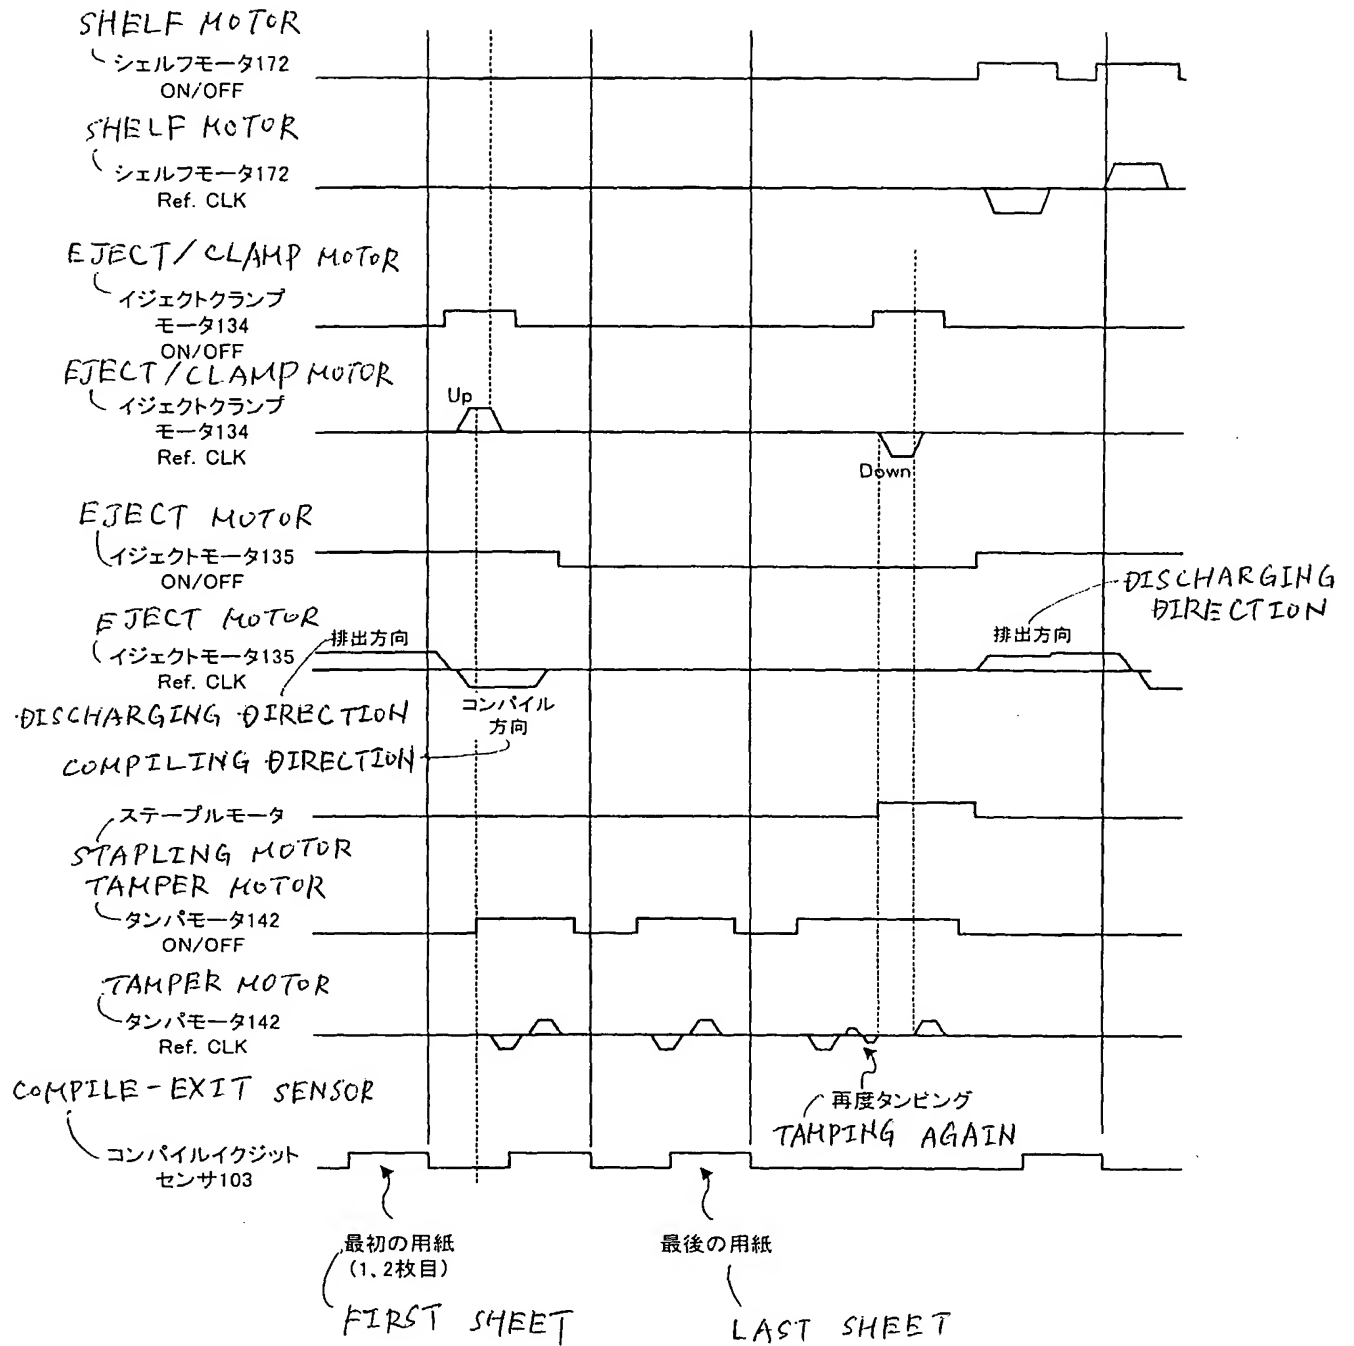 SHELF MOTOR
シェルフモータ172
ON/OFF
SHELF MOTOR
シェルフモータ172
Ref. CLK
EJECT/CLAMP MOTOR
イジェクトクランプ
モータ134
ON/OFF
EJECT/CLAMP MOTOR
イジェクトクランプ
モータ134
Ref. CLK
Up
Down
EJECT MOTOR
イジェクトモータ135
ON/OFF
DISCHARGING
DIRECTION
EJECT MOTOR
排出方向
排出方向
イジェクトモータ135
Ref. CLK
DISCHARGING DIRECTION
コンパイル
方向
COMPILING DIRECTION
ステープルモータ
STAPLING MOTOR
TAMPER MOTOR
タンパモータ142
ON/OFF
TAMPER MOTOR
タンパモータ142
Ref. CLK
再度タンピング
TAMPING AGAIN
COMPILE-EXIT SENSOR
コンパイルイクジット
センサ103
最初の用紙
(1、2枚目)
FIRST SHEET
最後の用紙
LAST SHEET